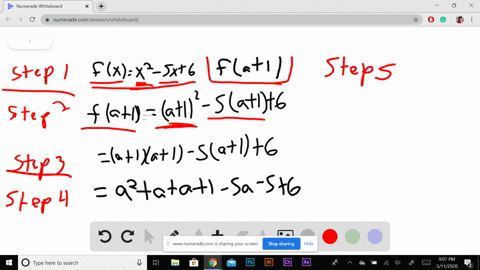 Numerade Whiteboard
numerade.com/answers/whiteboard/
Step 1 f(x)=x²-5x+6 f(a+1) Step 5
Step 2 f(a+1)=(a+1)²-5(a+1)+6
Step 3 =(a+1)(a+1)-5(a+1)+6
Step 4 =a²+a+a+1-5a-5+6
www.numerade.com is sharing your screen. Stop sharing Hide
Type here to search
9:07 PM
5/11/2020